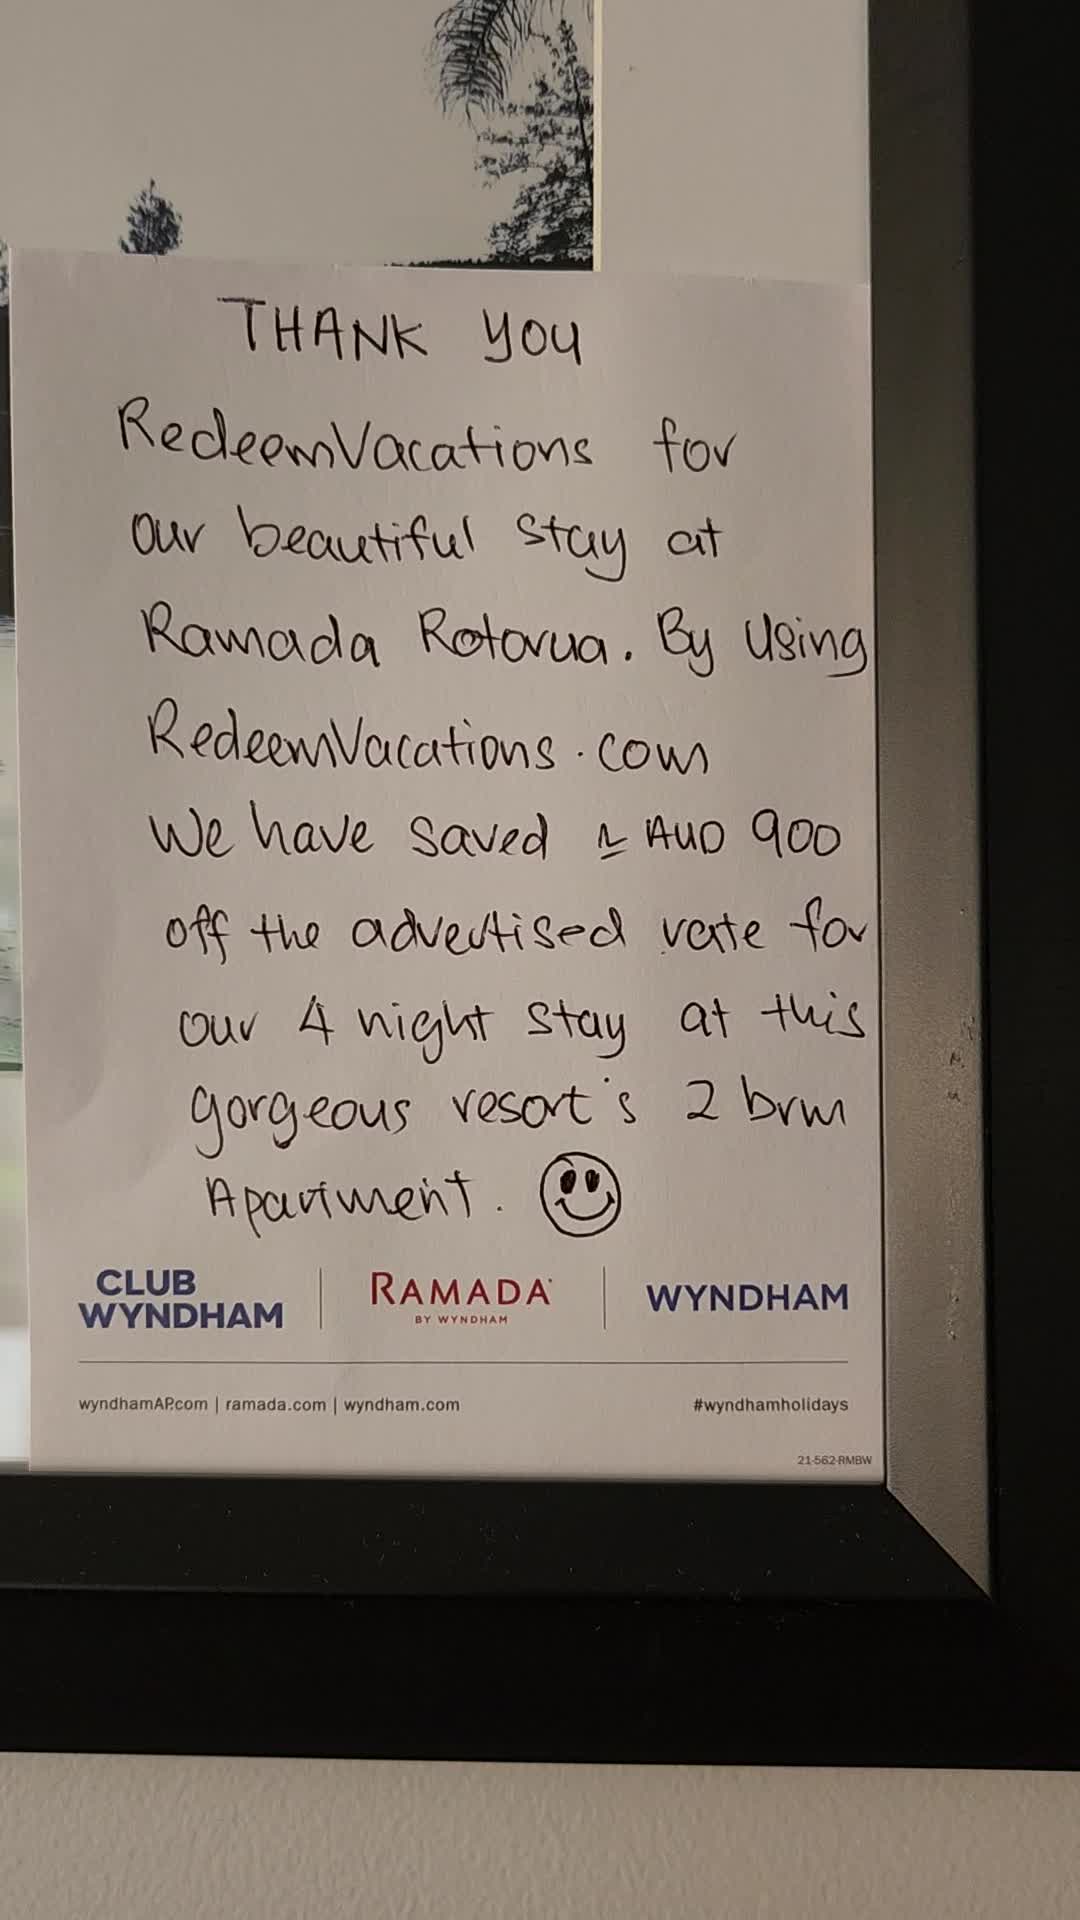 THANK YOU
RedeemVacations for
our beautiful stay at
Ramada Rotorua. By Using
RedeemVacations.com
We have saved ≈ AUD 900
off the advertised rate for
our 4 night stay at this
gorgeous resort's 2 brm
Apartment.
CLUB WYNDHAM | RAMADA BY WYNDHAM | WYNDHAM
wyndhamAP.com | ramada.com | wyndham.com #wyndhamholidays
21-562-RMBW